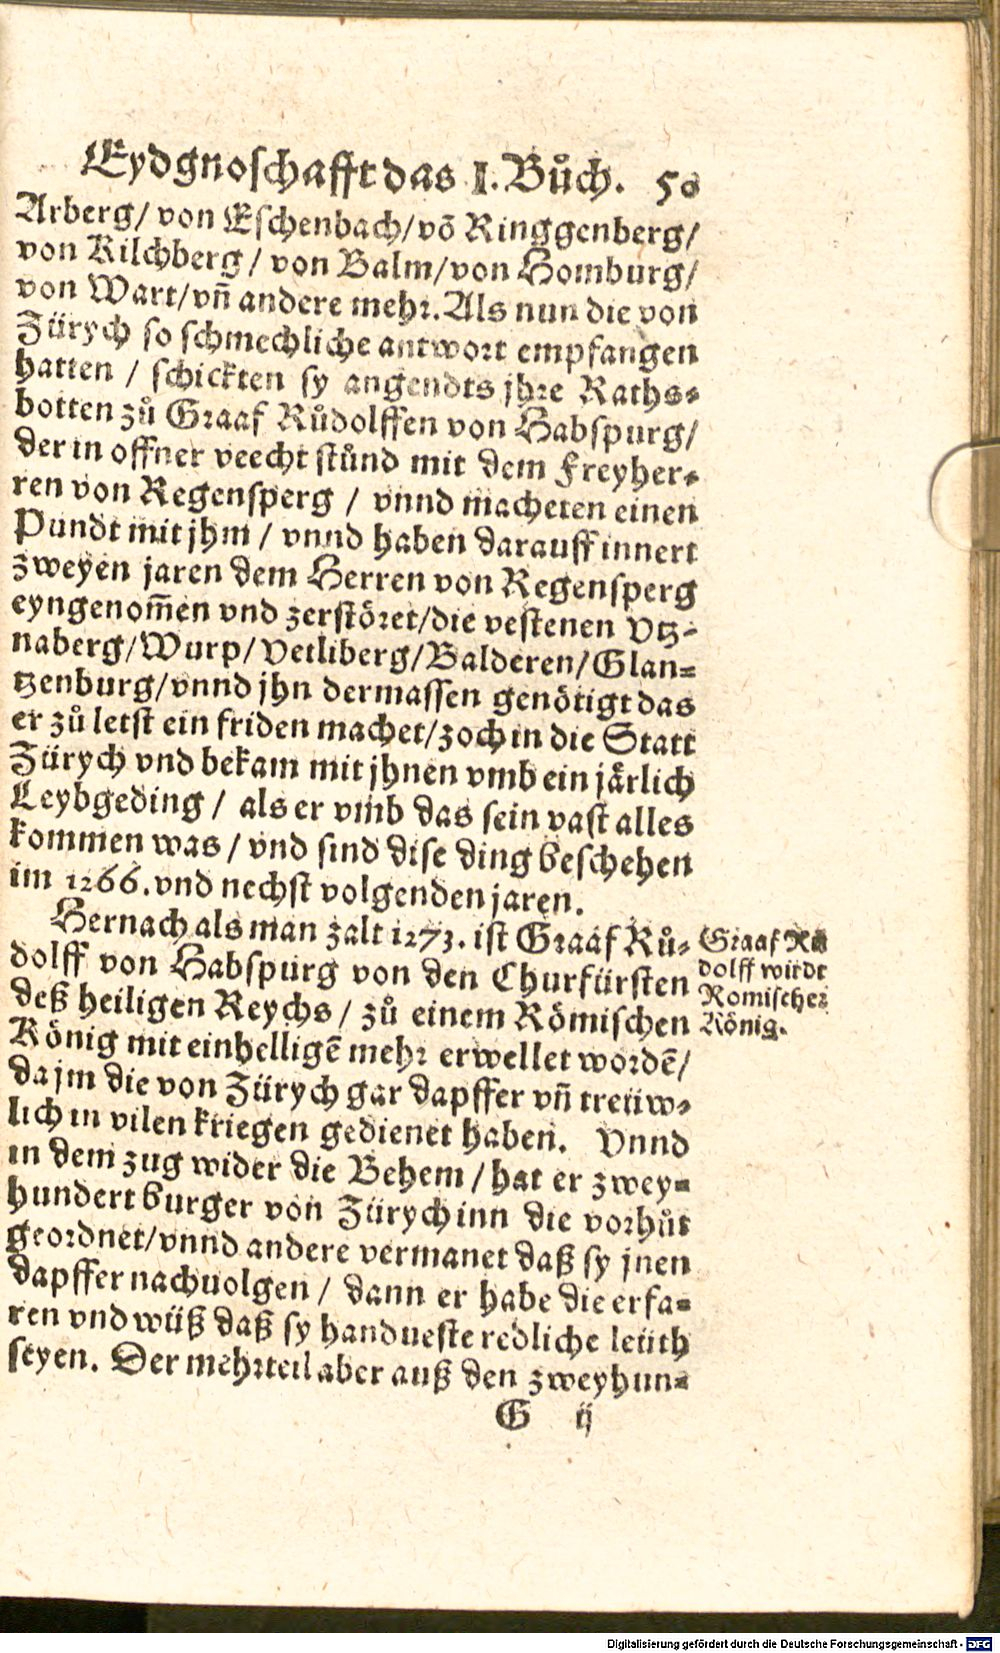 Eydgnoschafft das I. Bůch. 50
Arberg/ von Eschenbach/ võ Ringgenberg/
von Kilchberg/ von Balm/ von Homburg/
von Wart/ vñ andere mehr. Als nun die von
Zürych so schmechliche antwort empfangen
hatten / schickten sy angendts jhre Raths-
botten zů Graaf Růdolffen von Habspurg/
der in offner veecht stůnd mit dem Freyher-
ren von Regensperg / vnnd macheten einen
Pundt mit jhm / vnnd haben darauff innert
zweyen jaren dem Herren von Regensperg
eyngenom̃en vnd zerstöret/ die vestenen Vtz-
naberg/ Wurp/ Vetliberg/ Balderen/ Glan-
tzenburg/ vnnd jhn dermassen genötigt das
er zů letst ein friden machet/ zoch in die Statt
Zürych vnd bekam mit jhnen vmb ein järlich
Leybgeding / als er vmb das sein vast alles
kommen was / vnd sind dise ding beschehen
im 1266. vnd nechst volgenden jaren.
Hernach als man zalt 1273. ist Graaf Rů-
dolff von Habspurg von den Churfürsten
deß heiligen Reychs / zů einem Römischen
König mit einhelligẽ mehr erwellet wordẽ/
da jm die von Zürych gar dapffer vñ treüw-
lich in vilen kriegen gedienet haben. Vnnd
in dem zug wider die Behem / hat er zwey-
hundert burger von Zürych inn die vorhůt
geordnet/ vnnd andere vermanet daß sy jnen
dapffer nachuolgen / dann er habe die erfa-
ren vnd wüß daß sy handueste redliche leüth
seyen. Der mehrteil aber auß den zweyhun-
G ij
Graaf Rů
dolff wirdt
Römischer
König.
Digitalisierung gefördert durch die Deutsche Forschungsgemeinschaft - DFG